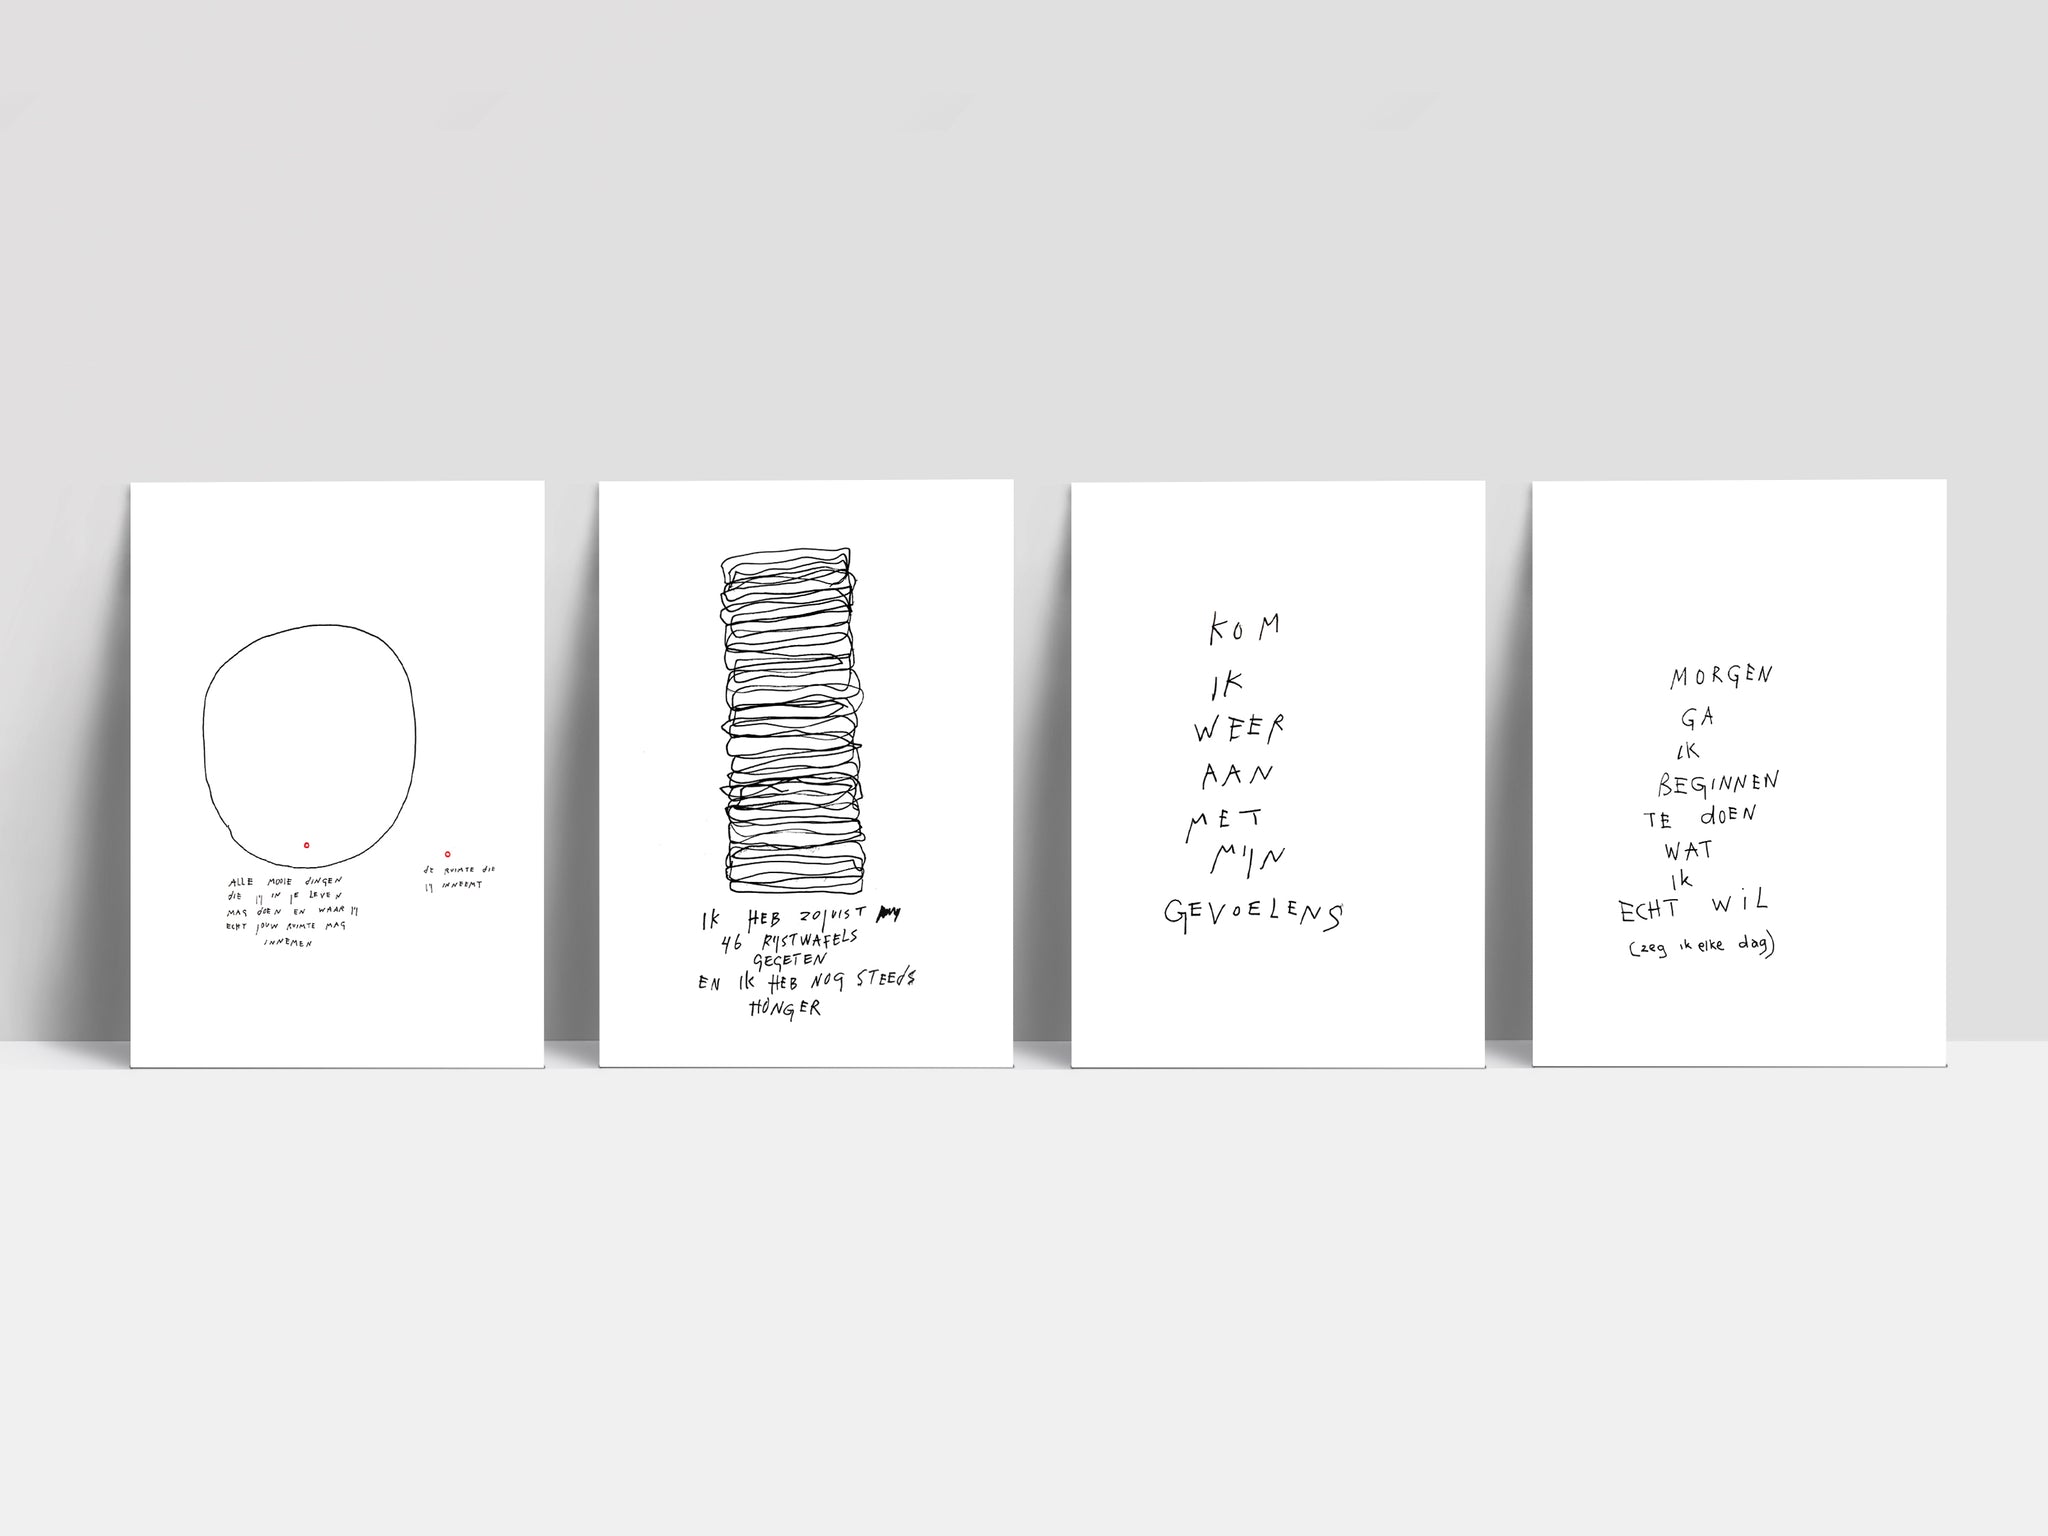 ALLE MOOIE dINGEN
dIE JIJ IN JE LEVEN
MAG dOEN EN WAAR JIJ
ECHT JOUW RUIMTE MAG
INNEMEN
dE RUIMTE dIE
JIJ INNEEMT
IK HEB ZOJUIST
46 RIJSTWAFELS
GEGETEN
EN IK HEB NOG STEEdS
HONGER
KOM
IK
WEER
AAN
MET
MIJN
GEVOELENS
MORGEN
GA
IK
BEGINNEN
TE dOEN
WAT
IK
ECHT WiL
(zeg ik elke dag)